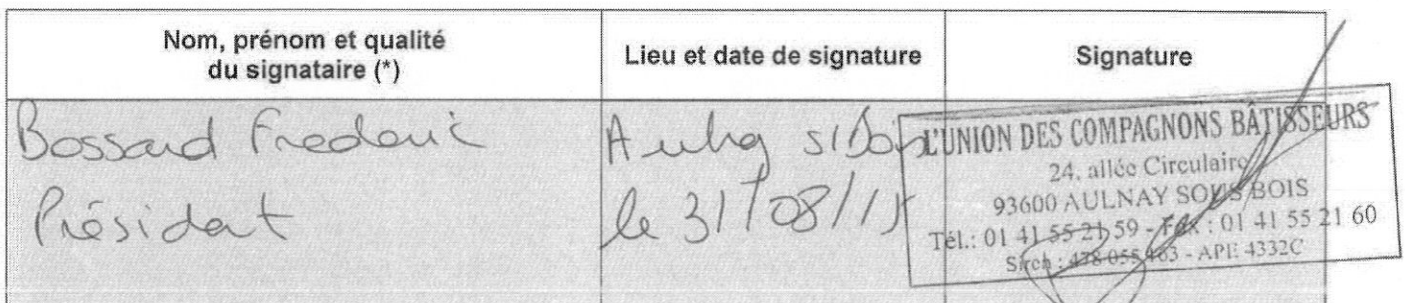 Nom, prénom et qualité
du signataire (*)
Lieu et date de signature
Signature
Bossard Frederic
Président
Aulnay s/Bois
le 31/08/15
L'UNION DES COMPAGNONS BÂTISSEURS
24, allée Circulaire
93600 AULNAY SOUS BOIS
Tél.: 01 41 55 21 59 - Fax : 01 41 55 21 60
- APE 4332C